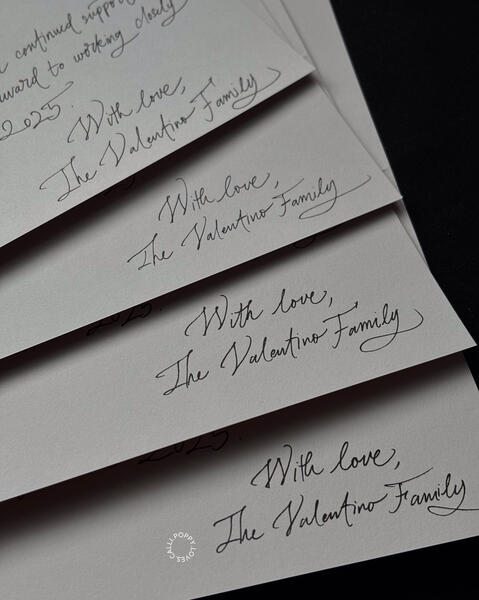 continued suppor
ward to working closely
2025.
With love,
The Valentino Family
With love,
The Valentino Family
2025.
With love,
The Valentino Family
2025.
With love,
The Valentino Family
CALLI.POPPY.LOVES